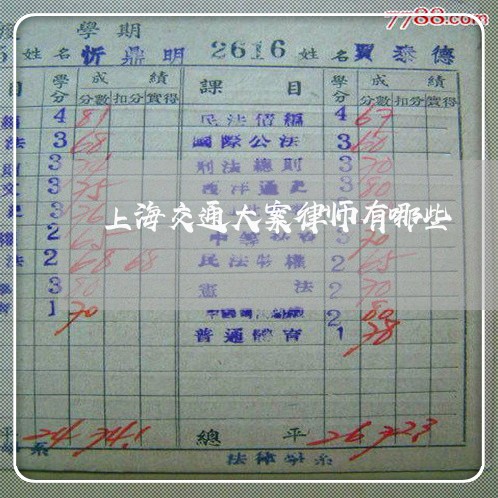 7788.com
學期
姓名忻鼎明 2616 姓名賈泰德
目 學分 成績 課目 學分 成績
分數 扣分 實得 分數 扣分 實得
4 81 民法債編 4 67
法 3 68 國際公法 3 60
3 刑法總則 3 70
3 75 西洋通史 3 80
3 76 3
上海交通大案律师有哪些
2 65 70
法 2 68 68 民法物權 2 65
3 80 憲法 2 70
1 70 2 80
普通體育 1 78
平 24 74.1 總平 26 72.3
系 法律學系